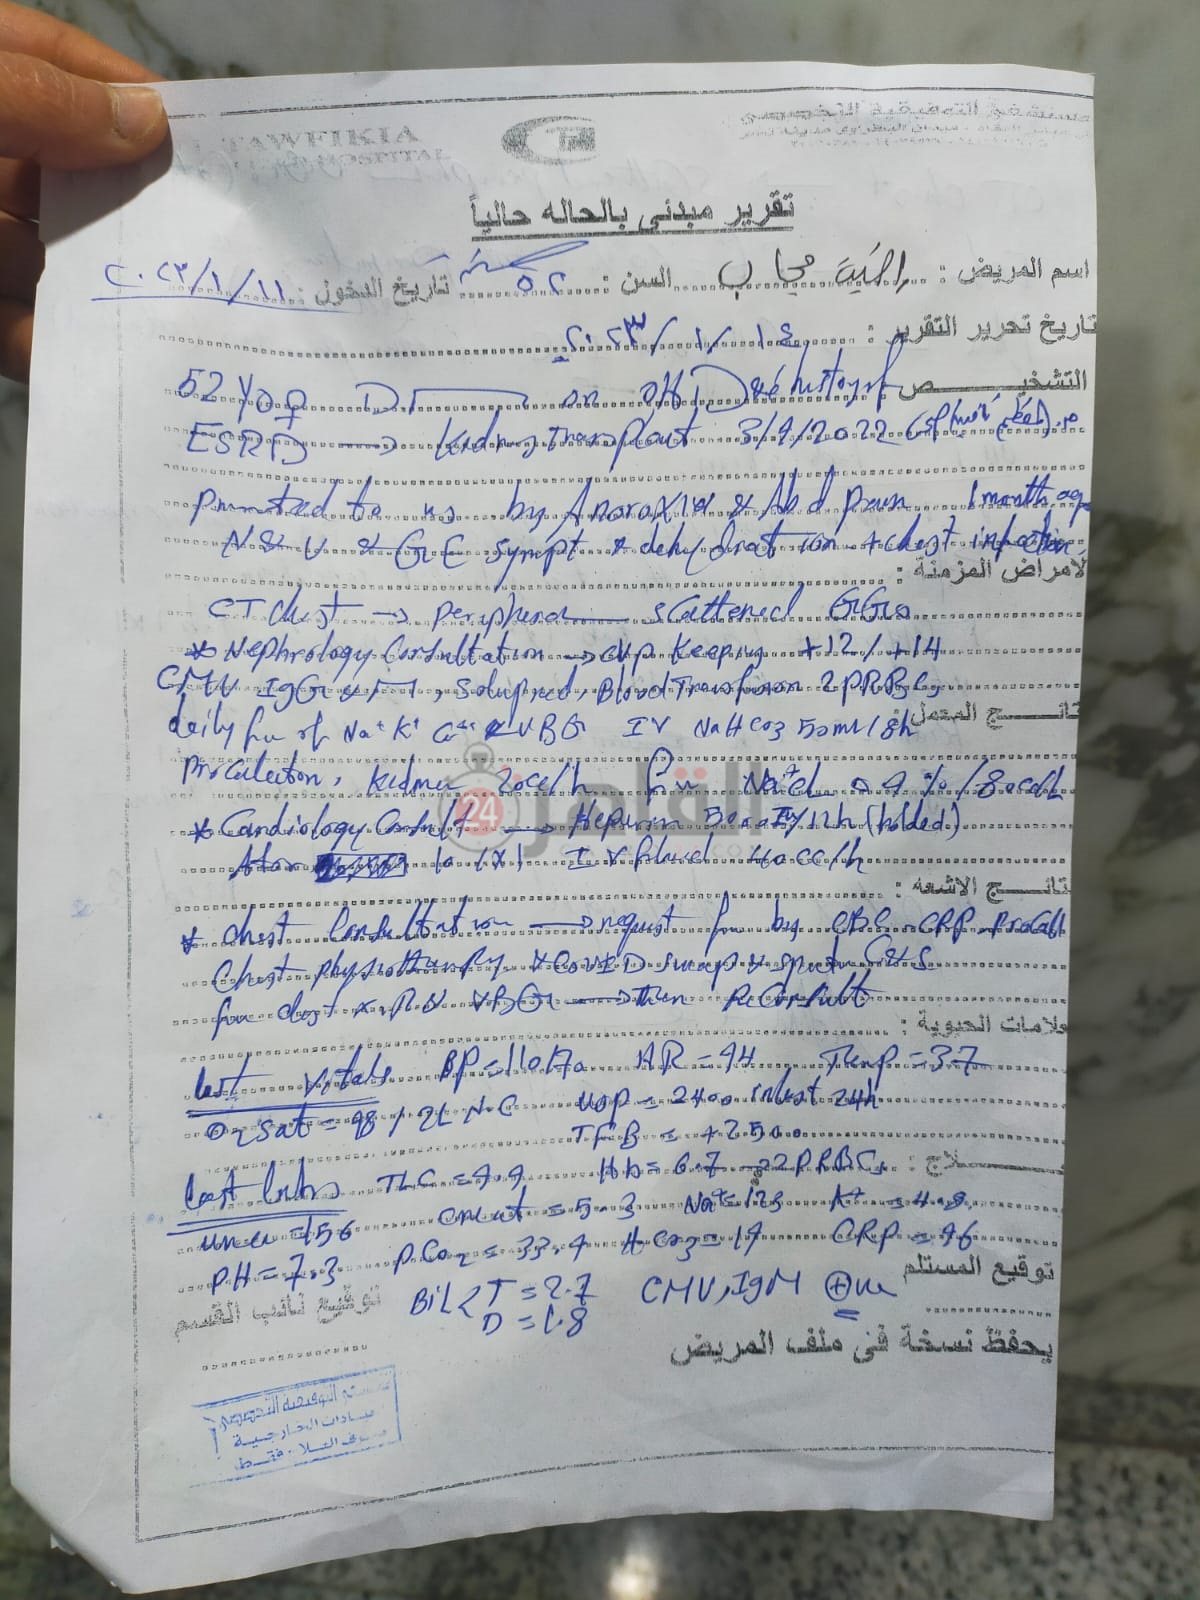 TAWFIKIA
HOSPITAL
مستشفى التوفيقية التخصصى
تقرير مبدئى بالحاله حالياً
اسم المريض : محاب السن : ٥٢ سنة تاريخ الدخول : ٢٠٢٣/١/١١
تاريخ تحرير التقرير : ٢٠٢٣/١/١٤
التشخيـــــــص
52 yo ♀ on HD history of
ESRD → Kidney transplant 3/9/2022
to us by Anorexia & Abd pain 1 month ago
N & V & GE sympt & dehydration + chest infection
الامراض المزمنة :
CT chest → peripheral scattered GGOs
* Nephrology Consultation → cvp keeping +12 / +14
CMV IgG & M, Solupred, Blood Transfusion 2 PRBCs
نتائـــج المعمل :
daily fu of Na+ K+ Ca++ & VBG IV NaHCO3 50ml/8h
Procalciton, Kidmin 20cc/h NaCL 0.9% /80cc/h
القاهرة 24
* Cardiology Consult → Heparin /12h (holded)
Ator 10 1x1 IV fluid 40cc/h
نتائـــج الاشعه :
* chest Consultation → request fu by CBC - CRP - Procal
Chest physiotherapy & COVID swap & sputum C&S
fu chest x-Ray VBG → then ReConsult
علامات الحيوية :
last vitals BP = 110/70 HR = 94 Temp = 37
O2 Sat = 98 / 2L N.C uop = 2400 in last 24h
TFB = +2500
عـــــلاج :
last labs TLC = 9.9 Hb = 6.7 → 2 PRBCs
urea = 156 Creat = 5.3 Na+ = 123 K+ = 4.8
PH = 7.3 PCO2 = 33.4 HCO3 = 19 CRP = 96
توقيع المستلم
توقيع نائب القسم
Bil < T = 2.7 CMV, IgM ⊕ve
D = 1.8
يحفظ نسخة فى ملف المريض
مستشفى التوفيقية التخصصى
عيادات الخارجية